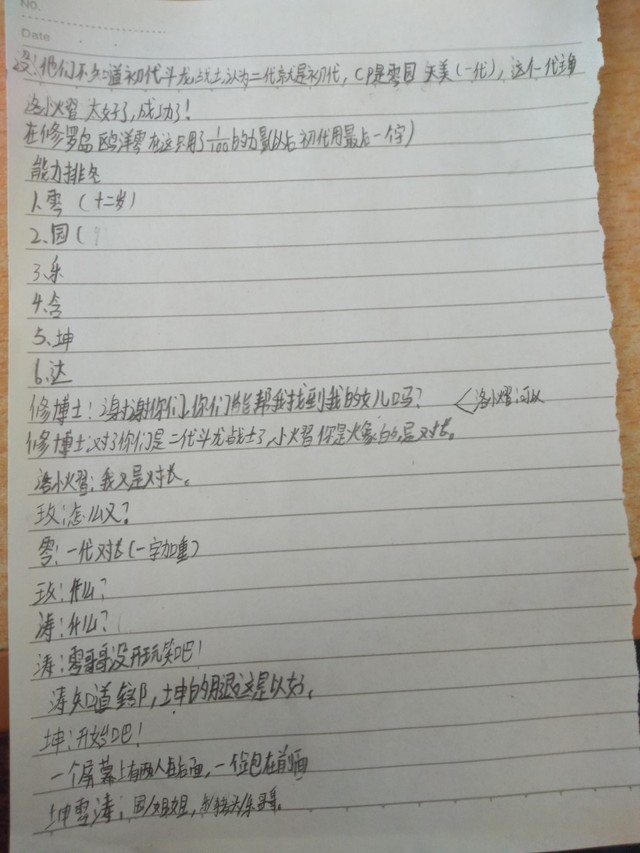 No.
Date
设:他们不知道初代斗龙战士,认为二代就是初代,CP是雪园 天美(一代),这个一代主角
洛小熠 太好了,成功了!
在修罗岛 欧洋零龙这用了1/100的力量(以后初代用最后一个字)
能力排名
1.零 (十二岁)
2.园(
3.乐
4.含
5.坤
6.达
修博士:谢谢你们,你们能帮我找到我的女儿吗? <洛小熠:可以
修博士:对了你们是二代斗龙战士了,小熠你是火象的,是对长。
洛小熠:我又是对长。
玫:怎么又?
零:一代对长(一字加重)
玫:什么?
涛:什么?
涛:零哥哥没开玩笑吧!
涛知道 坤的腿这是以好。
坤:开始吧!
一个屏幕上有两人 后面,一 在前面
坤雪涛:园姐姐, 乐哥哥。